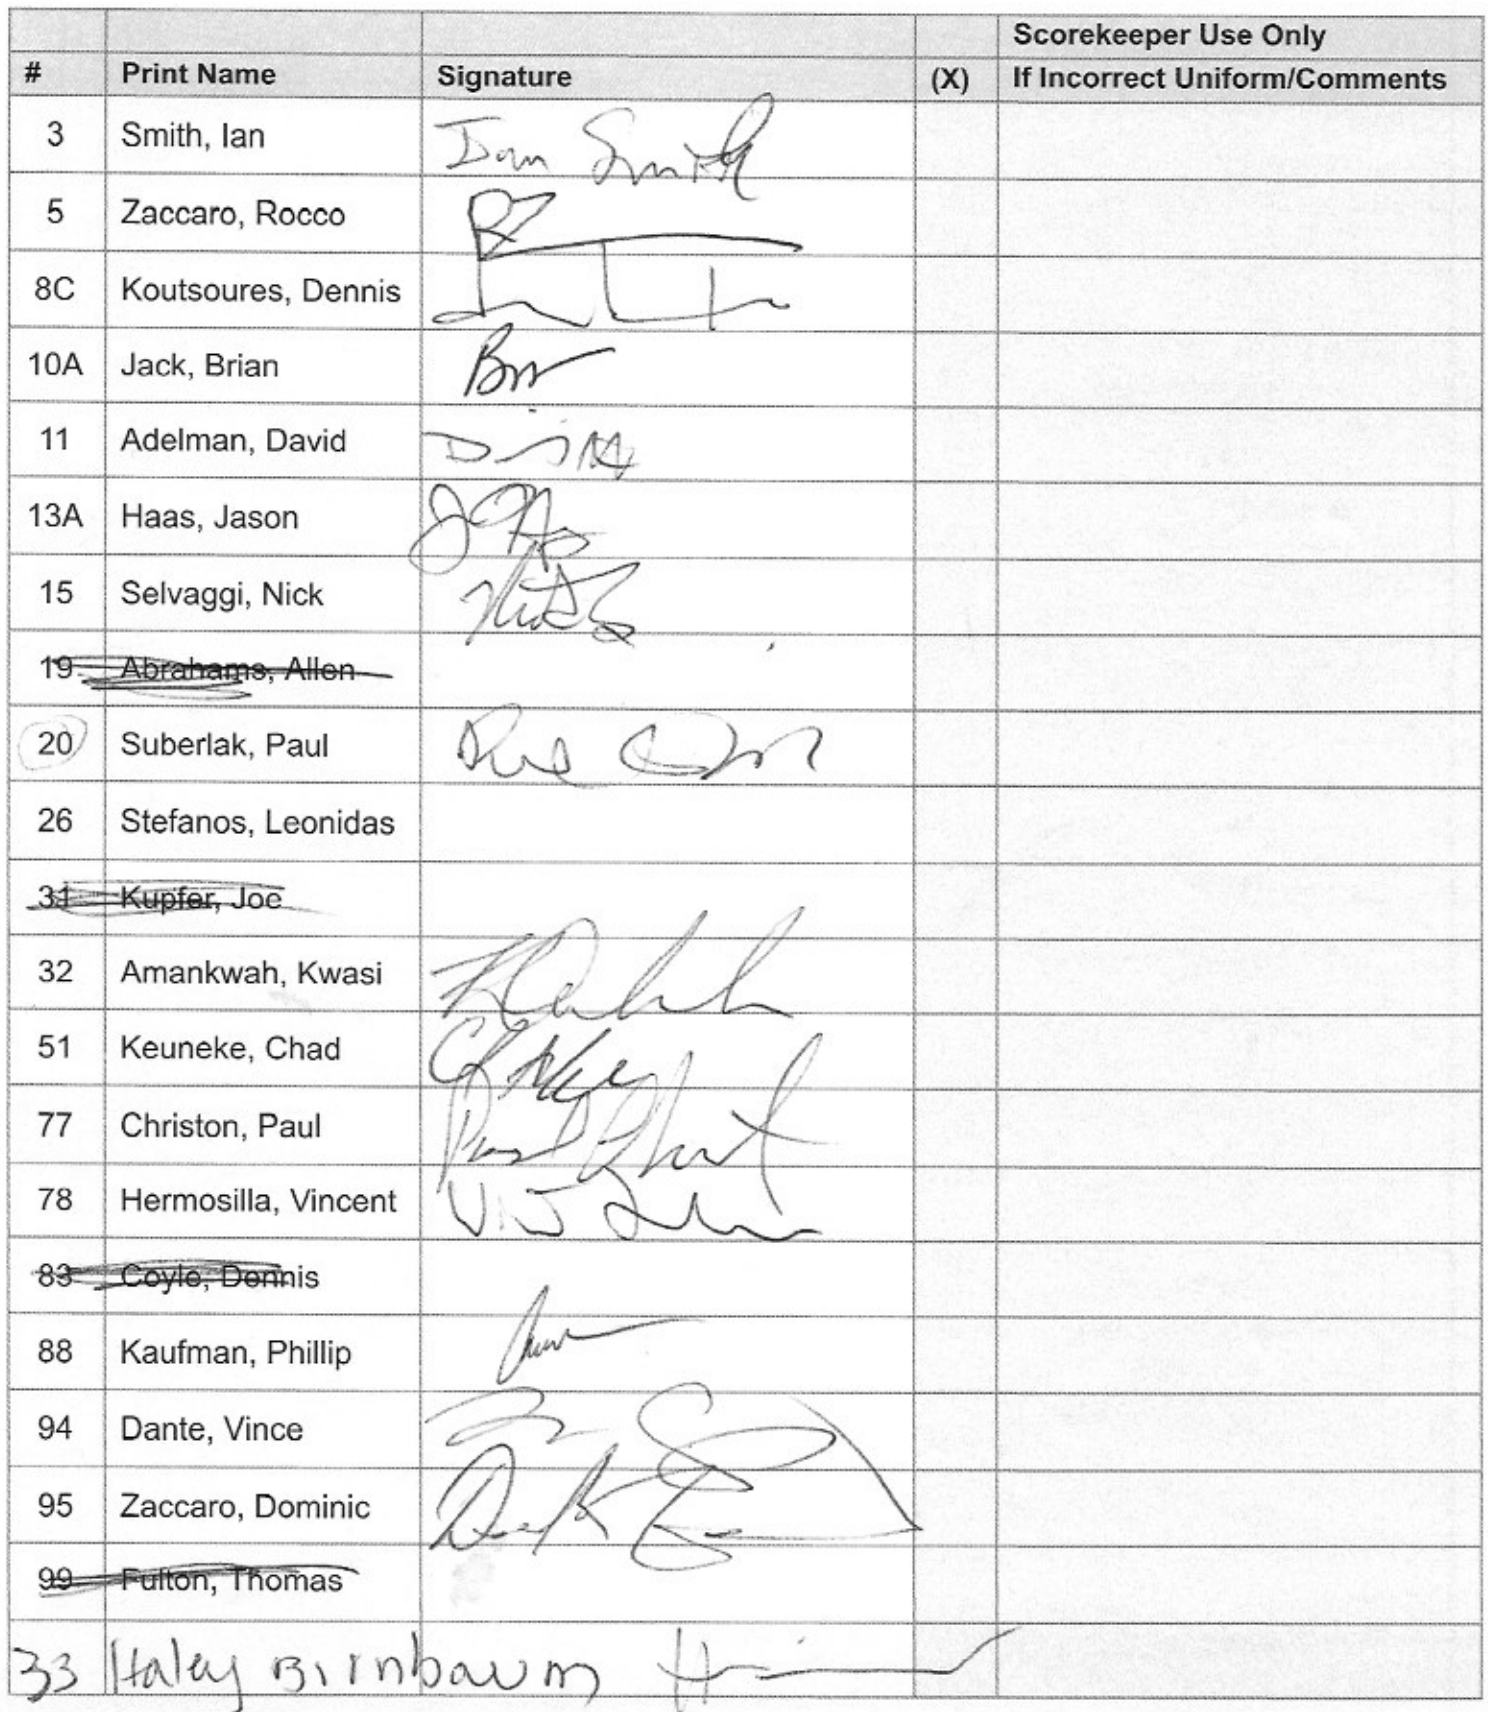 Scorekeeper Use Only
# Print Name Signature (X) If Incorrect Uniform/Comments
3 Smith, Ian Ian Smith
5 Zaccaro, Rocco RZ
8C Koutsoures, Dennis
10A Jack, Brian
11 Adelman, David
13A Haas, Jason
15 Selvaggi, Nick
19 Abrahams, Allen
20 Suberlak, Paul
26 Stefanos, Leonidas
31 Kupfer, Joe
32 Amankwah, Kwasi
51 Keuneke, Chad
77 Christon, Paul
78 Hermosilla, Vincent
83 Coyle, Dennis
88 Kaufman, Phillip
94 Dante, Vince
95 Zaccaro, Dominic
99 Fulton, Thomas
33 Haley Birnbaum